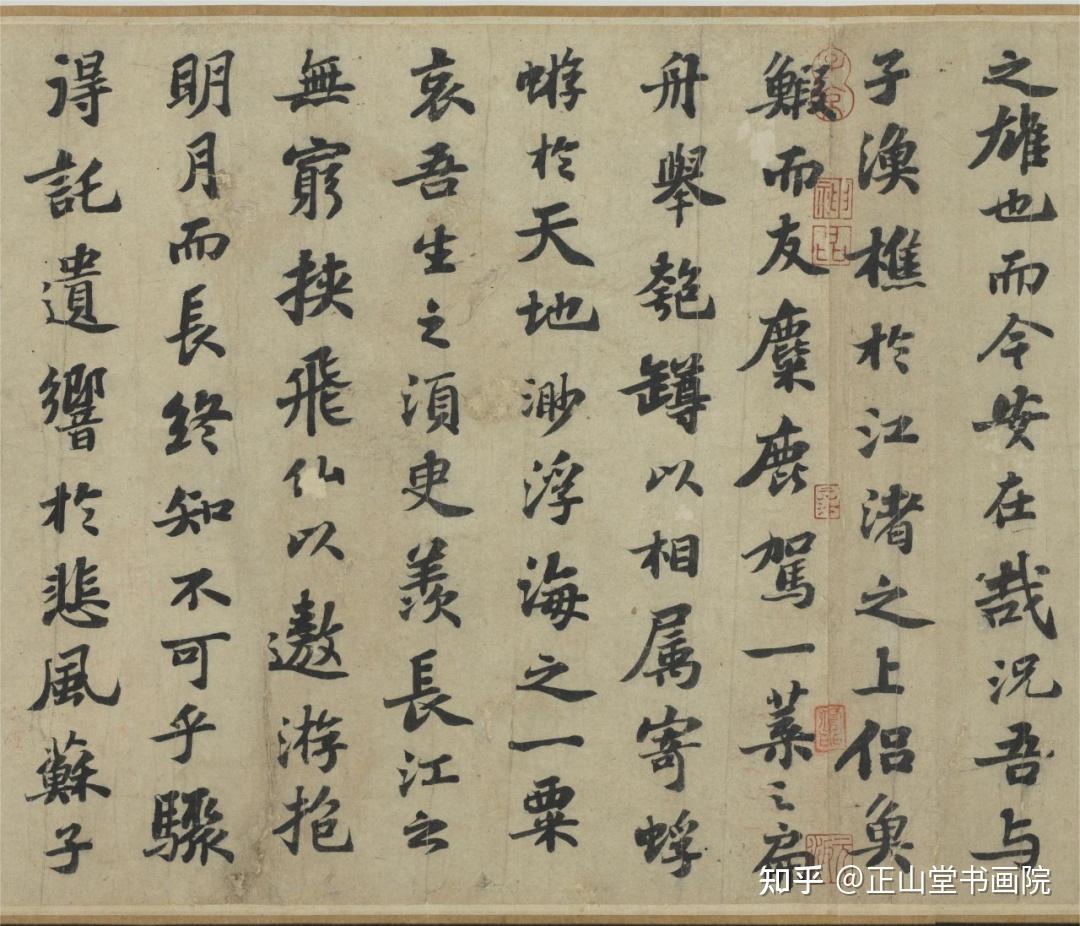 之雄也而今安在哉況吾与
子漁樵於江渚之上侶魚
鰕而友麋鹿駕一葉之扁
舟舉匏罇以相属寄蜉
蝣於天地渺浮海之一粟
哀吾生之須臾羨長江之
無窮挾飛仙以遨游抱
明月而長終知不可乎驟
得託遺響於悲風蘇子
神品
知乎 @正山堂书画院